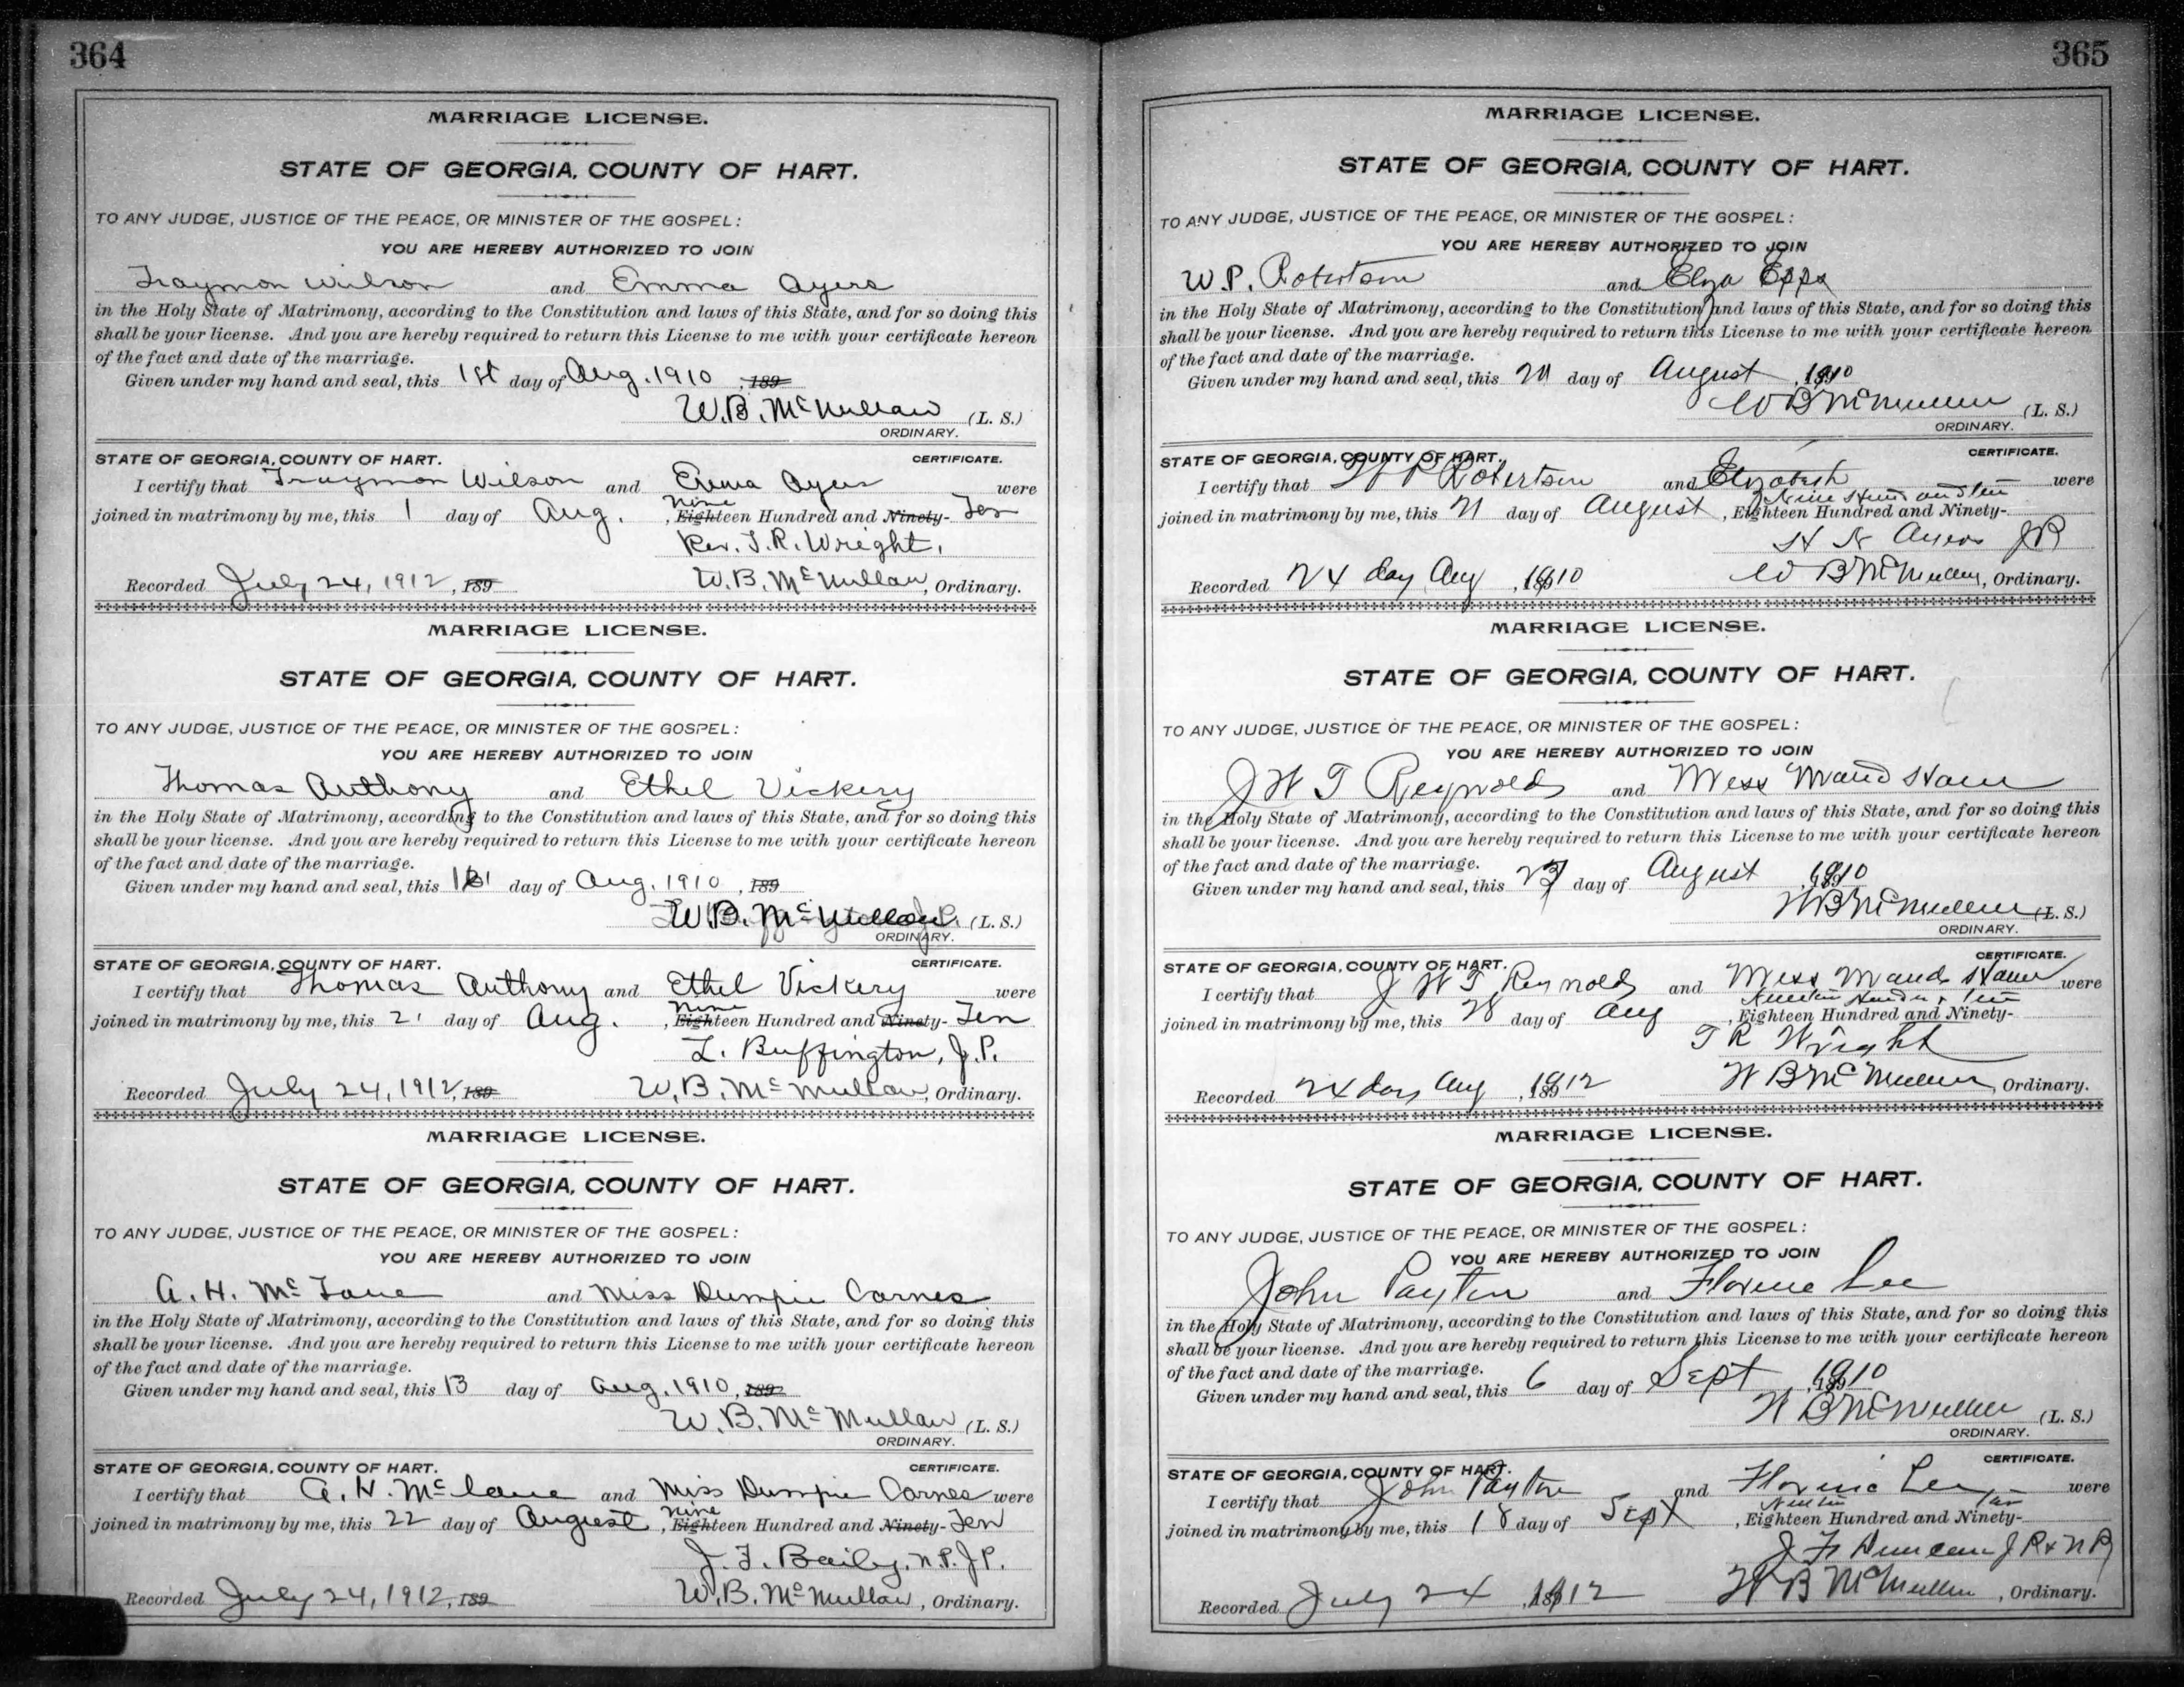 364
MARRIAGE LICENSE.
STATE OF GEORGIA, COUNTY OF HART.
TO ANY JUDGE, JUSTICE OF THE PEACE, OR MINISTER OF THE GOSPEL:
YOU ARE HEREBY AUTHORIZED TO JOIN
Traymon Wilson and Emma Ayers
in the Holy State of Matrimony, according to the Constitution and laws of this State, and for so doing this
shall be your license. And you are hereby required to return this License to me with your certificate hereon
of the fact and date of the marriage.
Given under my hand and seal, this 1st day of Aug. 1910, 189
W.B. McMullan (L. S.)
ORDINARY.
STATE OF GEORGIA, COUNTY OF HART. CERTIFICATE.
I certify that Traymon Wilson and Emma Ayers were
Nine
joined in matrimony by me, this 1 day of Aug., Eighteen Hundred and Ninety- Ten
Rev. T.R. Wright.
Recorded July 24, 1912, 189 W.B. McMullan, Ordinary.
MARRIAGE LICENSE.
STATE OF GEORGIA, COUNTY OF HART.
TO ANY JUDGE, JUSTICE OF THE PEACE, OR MINISTER OF THE GOSPEL:
YOU ARE HEREBY AUTHORIZED TO JOIN
Thomas Anthony and Ethel Vickery
in the Holy State of Matrimony, according to the Constitution and laws of this State, and for so doing this
shall be your license. And you are hereby required to return this License to me with your certificate hereon
of the fact and date of the marriage.
Given under my hand and seal, this day of Aug. 1910, 189
W.B. McMullan (L. S.)
ORDINARY.
STATE OF GEORGIA, COUNTY OF HART. CERTIFICATE.
I certify that Thomas Anthony and Ethel Vickery were
Nine
joined in matrimony by me, this 21 day of Aug., Eighteen Hundred and Ninety- Ten
L. Buffington, J.P.
Recorded July 24, 1912, 189 W.B. McMullan, Ordinary.
MARRIAGE LICENSE.
STATE OF GEORGIA, COUNTY OF HART.
TO ANY JUDGE, JUSTICE OF THE PEACE, OR MINISTER OF THE GOSPEL:
YOU ARE HEREBY AUTHORIZED TO JOIN
A. H. McLane and Miss Dumpie Carnes
in the Holy State of Matrimony, according to the Constitution and laws of this State, and for so doing this
shall be your license. And you are hereby required to return this License to me with your certificate hereon
of the fact and date of the marriage.
Given under my hand and seal, this 13 day of Aug. 1910, 189
W.B. McMullan (L. S.)
ORDINARY.
STATE OF GEORGIA, COUNTY OF HART. CERTIFICATE.
I certify that A. H. McLane and Miss Dumpie Carnes were
Nine
joined in matrimony by me, this 22 day of August, Eighteen Hundred and Ninety- Ten
J. F. Baily, N.P. J.P.
Recorded July 24, 1912, 189 W.B. McMullan, Ordinary.
365
MARRIAGE LICENSE.
STATE OF GEORGIA, COUNTY OF HART.
TO ANY JUDGE, JUSTICE OF THE PEACE, OR MINISTER OF THE GOSPEL:
YOU ARE HEREBY AUTHORIZED TO JOIN
W. P. Robertson and Eliza Epps
in the Holy State of Matrimony, according to the Constitution and laws of this State, and for so doing this
shall be your license. And you are hereby required to return this License to me with your certificate hereon
of the fact and date of the marriage.
Given under my hand and seal, this day of August, 1910
W B McMullan (L. S.)
ORDINARY.
STATE OF GEORGIA, COUNTY OF HART. CERTIFICATE.
I certify that W P Robertson and Elizabeth were
Nine Hund and Ten
joined in matrimony by me, this 21 day of August, Eighteen Hundred and Ninety-
H N Ayers JP
Recorded 24 day Aug, 1910 W B McMullan, Ordinary.
MARRIAGE LICENSE.
STATE OF GEORGIA, COUNTY OF HART.
TO ANY JUDGE, JUSTICE OF THE PEACE, OR MINISTER OF THE GOSPEL:
YOU ARE HEREBY AUTHORIZED TO JOIN
J W T Reynolds and Miss Maud Ham
in the Holy State of Matrimony, according to the Constitution and laws of this State, and for so doing this
shall be your license. And you are hereby required to return this License to me with your certificate hereon
of the fact and date of the marriage.
Given under my hand and seal, this day of August, 1910
W B McMullan (L. S.)
ORDINARY.
STATE OF GEORGIA, COUNTY OF HART. CERTIFICATE.
I certify that J W T Reynolds and Miss Maud Ham were
joined in matrimony by me, this 28 day of Aug, Eighteen Hundred and Ninety-
T R Wright
Recorded 24 day Aug, 1912 W B McMullan, Ordinary.
MARRIAGE LICENSE.
STATE OF GEORGIA, COUNTY OF HART.
TO ANY JUDGE, JUSTICE OF THE PEACE, OR MINISTER OF THE GOSPEL:
YOU ARE HEREBY AUTHORIZED TO JOIN
John Payton and Florine Lee
in the Holy State of Matrimony, according to the Constitution and laws of this State, and for so doing this
shall be your license. And you are hereby required to return this License to me with your certificate hereon
of the fact and date of the marriage.
Given under my hand and seal, this 6 day of Sept, 1910
W B McMullan (L. S.)
ORDINARY.
STATE OF GEORGIA, COUNTY OF HART. CERTIFICATE.
I certify that John Payton and Florine Lee were
Ten
joined in matrimony by me, this 18 day of Sept, Eighteen Hundred and Ninety-
J F Duncan J P & N P
Recorded July 24, 1912 W B McMullan, Ordinary.